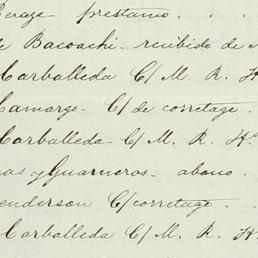 Beraze - prestamo . . .
de Bacoachi - recibido de
Carballeda C/ M. R. H
Camargo - C/ de corretage . .
Carballeda - C/ M. R. Hs
as y Guarneros - abono .
enderson C/ corretage - .
Carballeda C/ M. R. H.